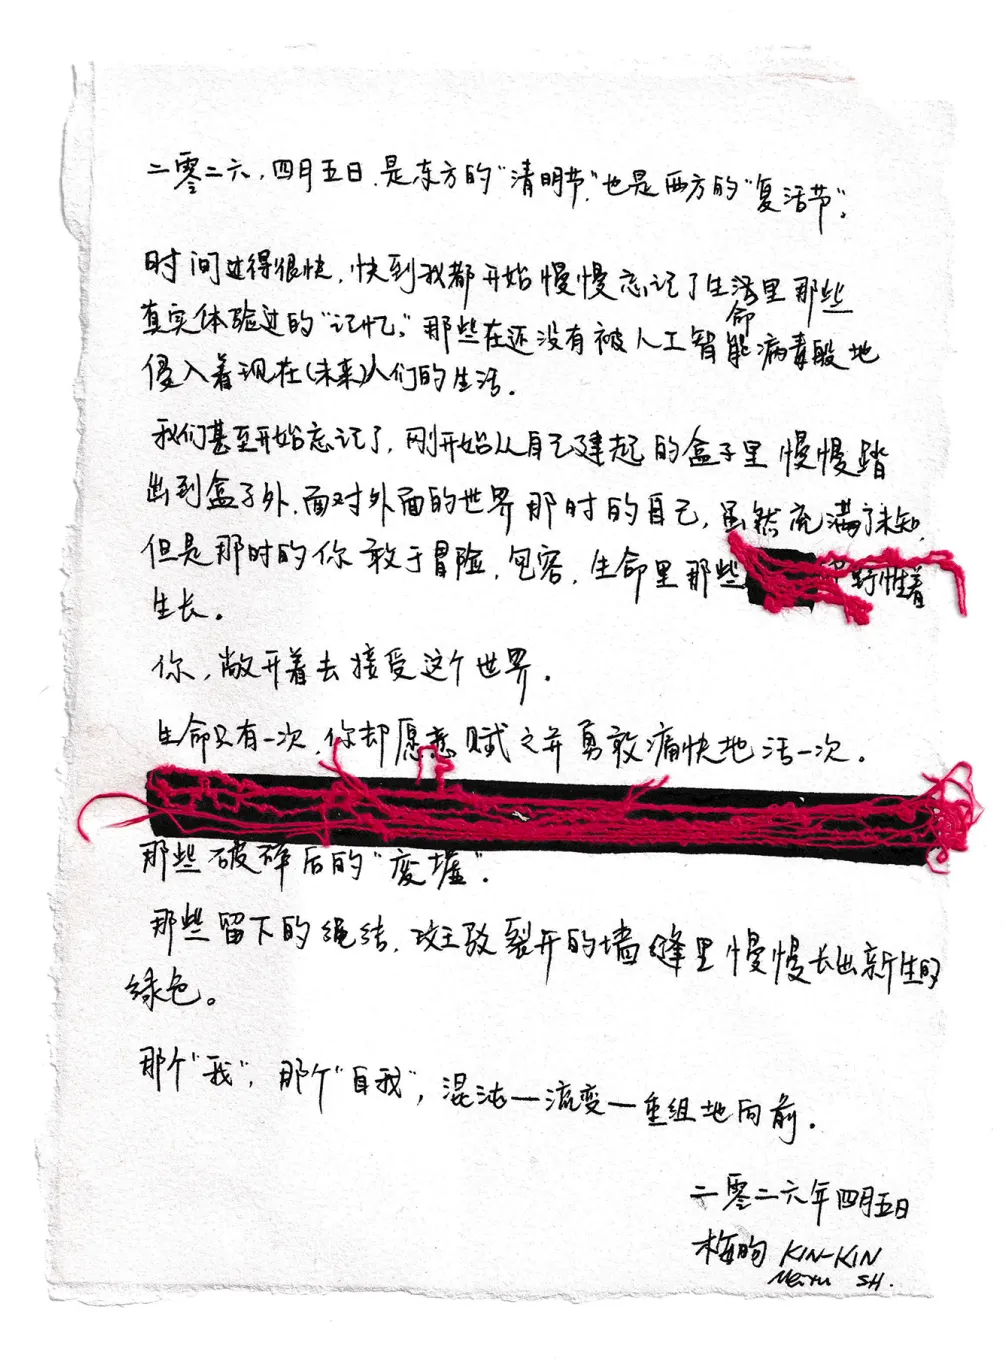 二零二六，四月五日，是东方的“清明节”，也是西方的“复活节”。
时间过得很快，快到我都开始慢慢忘记了生活里那些
命
真实体验过的“记忆”。那些在还没有被人工智能病毒般地
侵入着现在(未来)人们的生活。
我们甚至开始忘记了，刚开始从自己建起的盒子里慢慢踏
出到盒子外，面对外面的世界那时的自己，虽然充满了未知，
但是那时的你敢于冒险，包容，生命里那些 野性着
生长。
你，敞开着去接受这个世界。
生命只有一次，你却愿意赋之并勇敢痛快地活一次。
那些破碎后的“废墟”。
那些留下的绳结，裂开的墙缝里慢慢长出新生的
绿色。
那个“我”，那个“自我”，混沌—流变—重组地向前。
二零二六年四月五日
梅昀 KIN-KIN
SH.